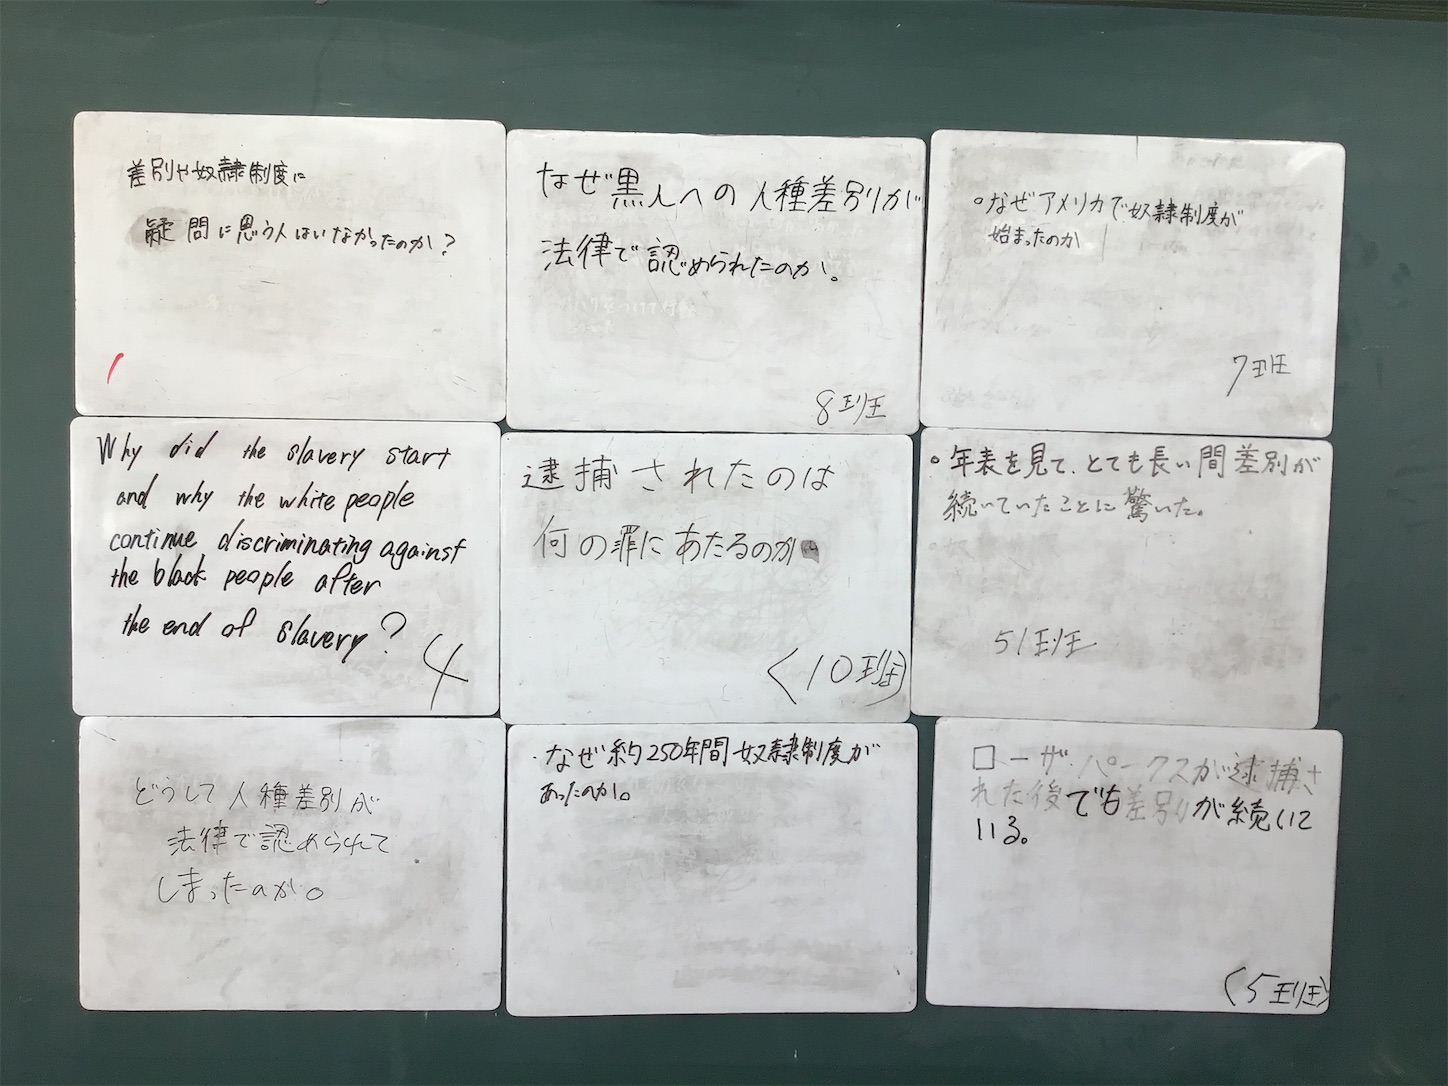 差別や奴隷制度に
疑問に思う人はいなかったのか?
なぜ黒人への人種差別が
法律で認められたのか。
8班
・なぜアメリカで奴隷制度が
始まったのか
7班
Why did the slavery start
and why the white people
continue discriminating against
the black people after
the end of slavery?
4
逮捕されたのは
何の罪にあたるのか
<10班>
・年表を見て、とても長い間差別が
続いていたことに驚いた。
班
どうして人種差別が
法律で認められて
しまったのか。
・なぜ約250年間奴隷制度が
あったのか。
ローザ・パークスが逮捕さ
れた後でも差別が続いて
いる。
<5班>